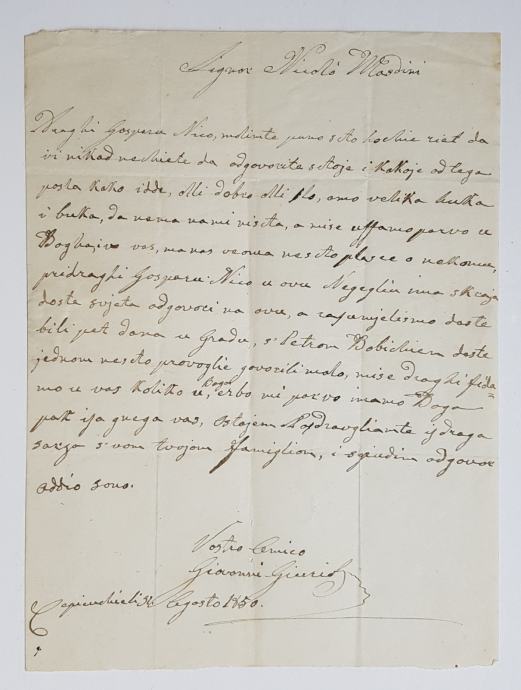 Signor Nicolò Mardini
Draghi Gosparu Nico, molivte puno scto hochie riet da
vi nikad nechiete da odgovorite sctoje i kakoje od tega
posla kako idde, Alli dobro Alli slo, amo velika huka
i buka, da nema nami niscta, a mi se uffamo parvo u
Bogha, i vo vas, ma nas veoma nescto plasce o nekomu,
pridraghi Gosparu Nico u ovu Negegliu ima
dosta svjeta odgovoci na ovu, a rasumjelismo da ste
bili pet dana u Gradu, s: Petrom Bobichiem da ste
jednom nescto provoglie govorili malo, mi se draghi fida=
mo u vas koliko u Boga, erbo mi parvo imamo Boga
pak isa gnega vas, Ostajem Posdravgliamte is draga
sarza s: vom tvojom Famigliom, i odgovor
addio sono.
Vostro Amico
Giovanni
Agosto 1850.